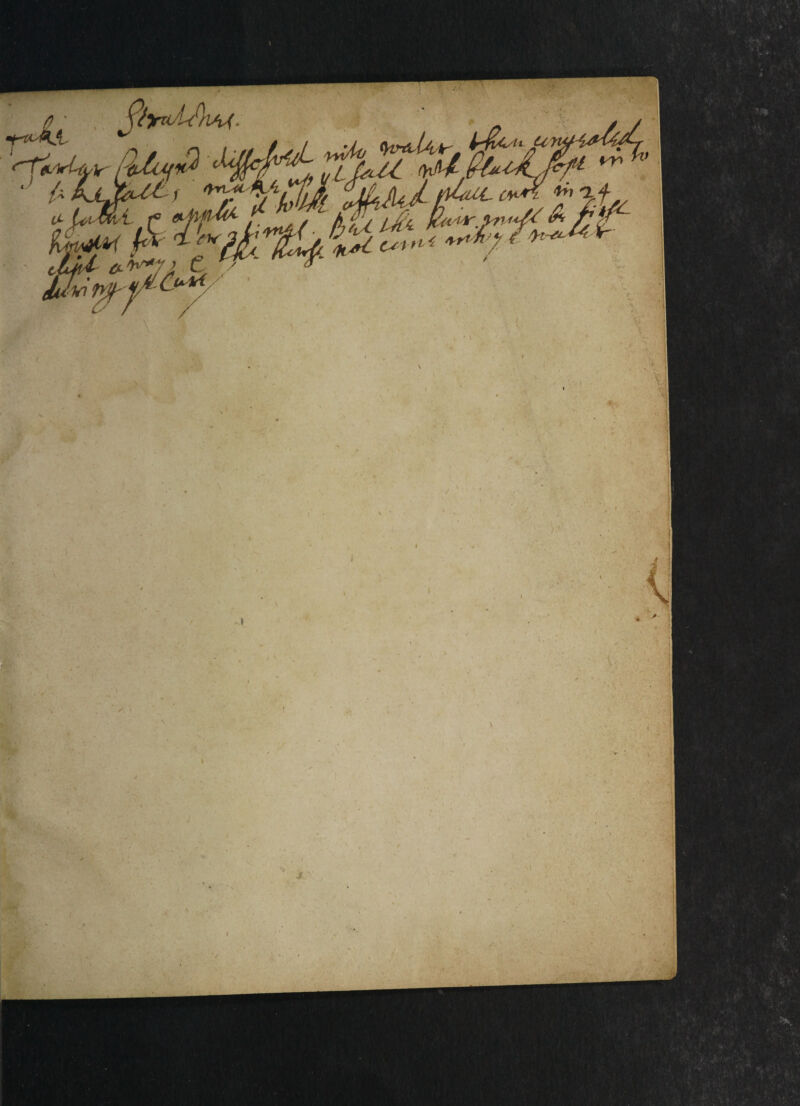 Scratches.
Take
Tartar Calcyn'd dissolved into water then congealed
like salt, make up yt salt wth black sope into
a salve & applie it to the affected place once in 24
houres for 2 or 3 times. But the hair must be first
clipt away, & the horse not come into ye water
during ye Cure